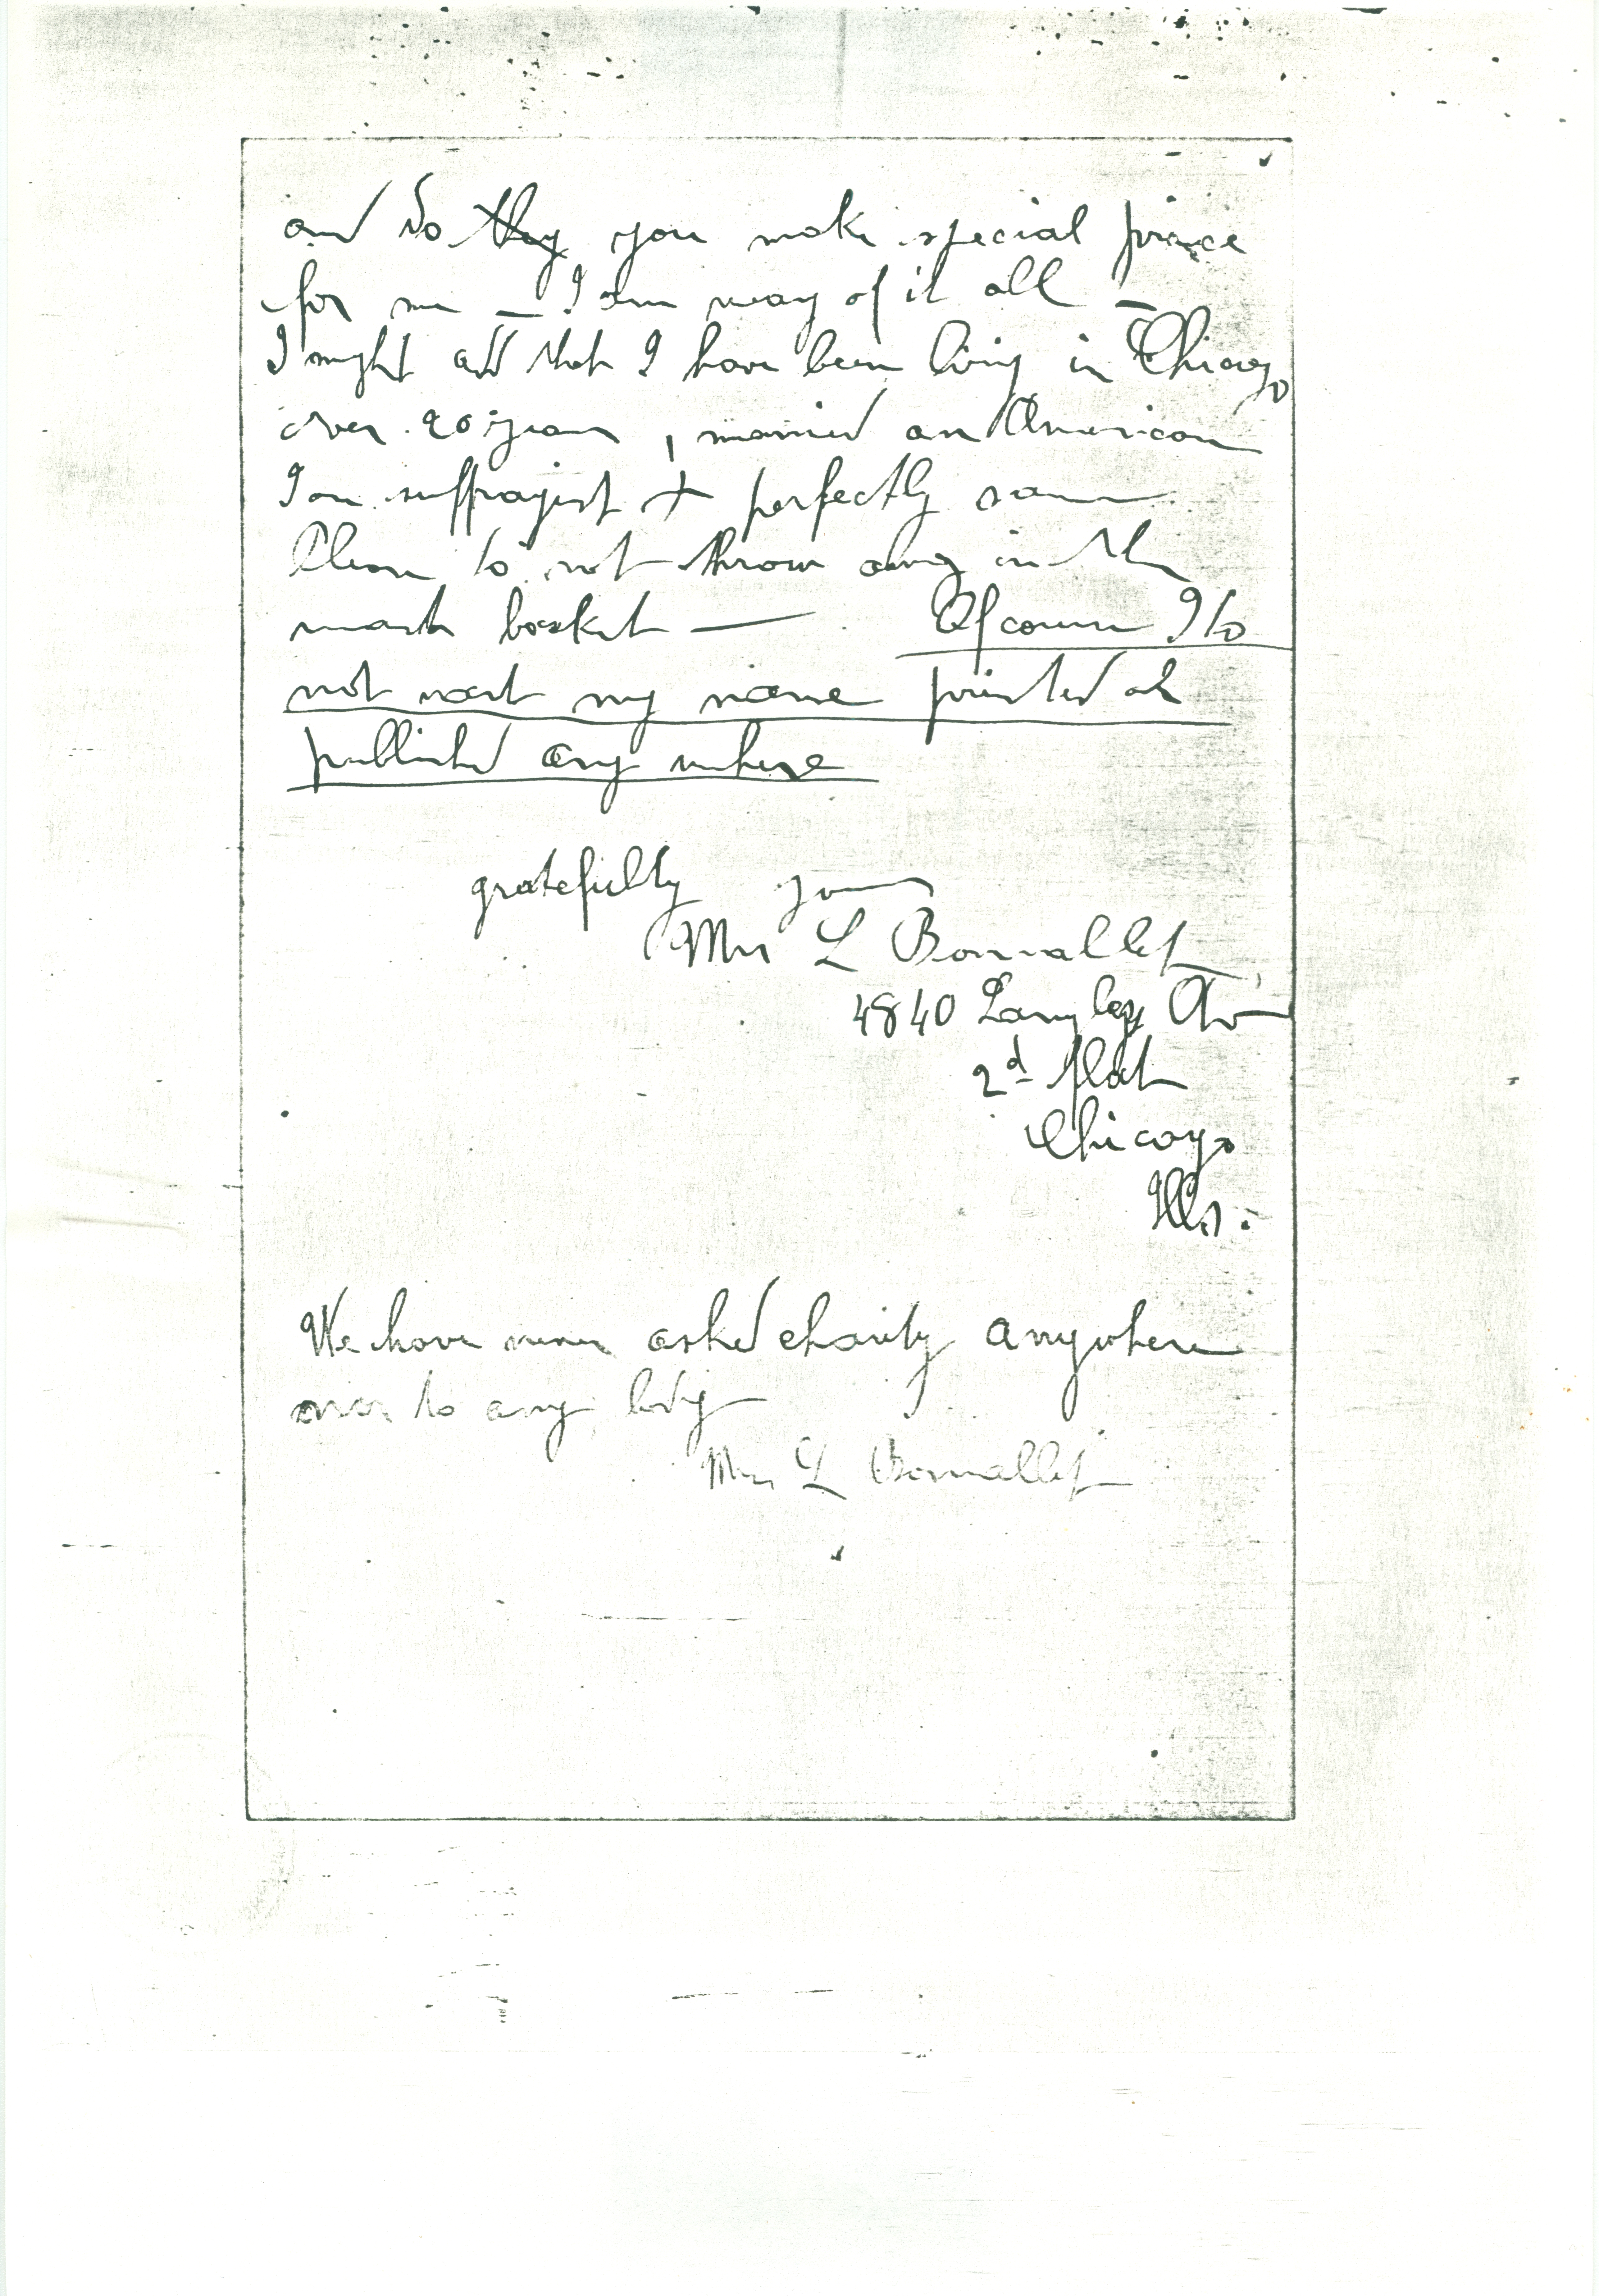 and do they you make special price
for me — I am weary of it all —
I might add that I have been living in Chicago
over 20 years, married an American
I am suffragist + perfectly sane
Please do not throw away in the
waste basket — Of course I do
not want my name printed or
published any where
gratefully yours
Mrs L Bonnallet
4840 Langley Av
2d flat
Chicago
Ills.
We have never asked charity anywhere
to any body
Mrs L Bonnallet